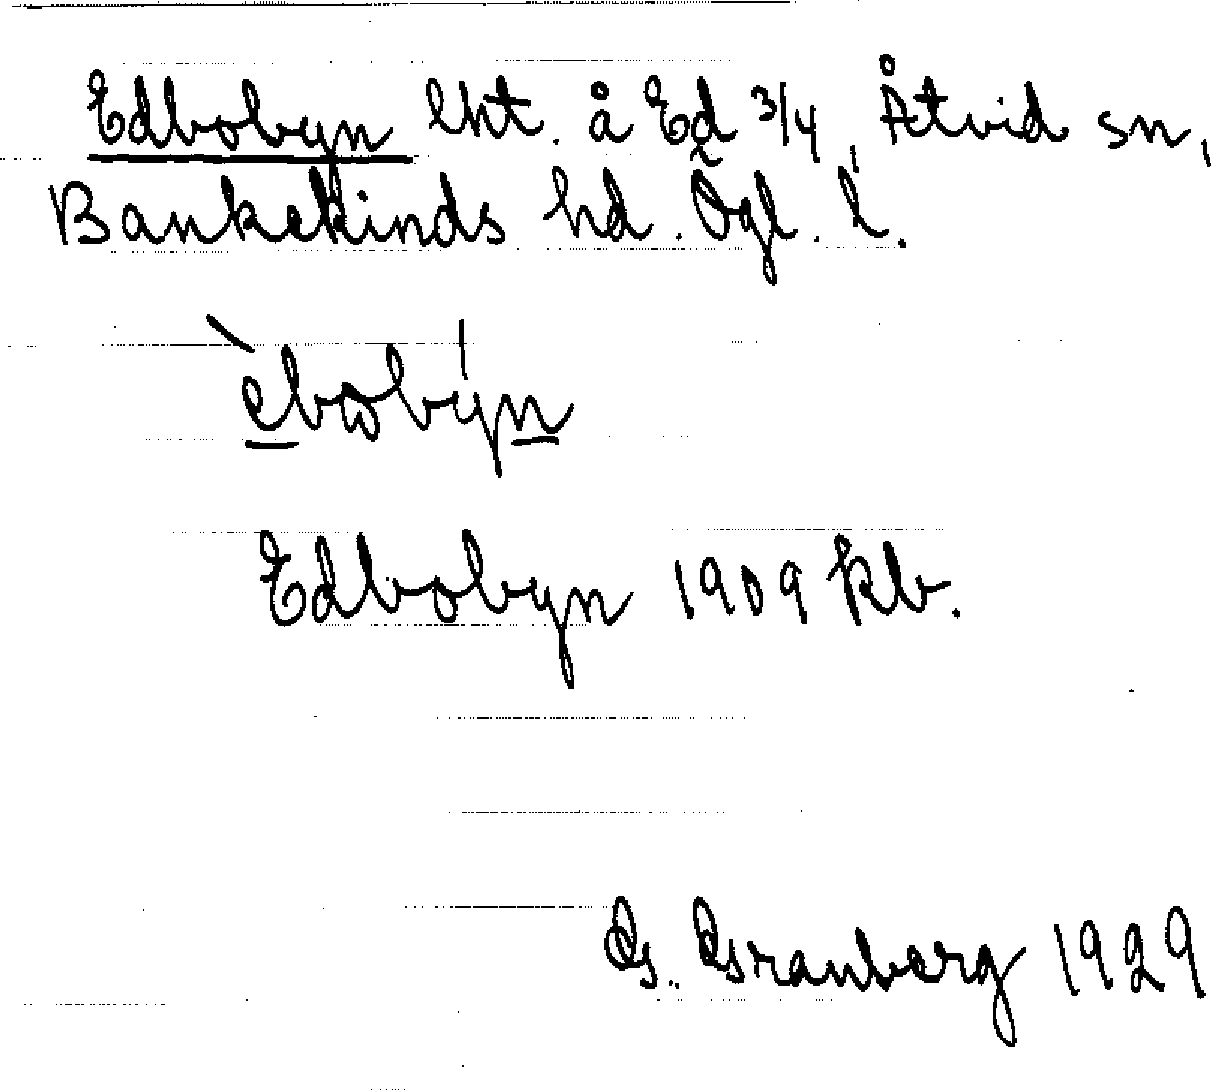 Edbobyn lht. å Ed 3/4, Åtvid sn,
Bankekinds hd. Ögl. l.
èbobýn
Edbobyn 1909 kb.
G. Granberg 1929